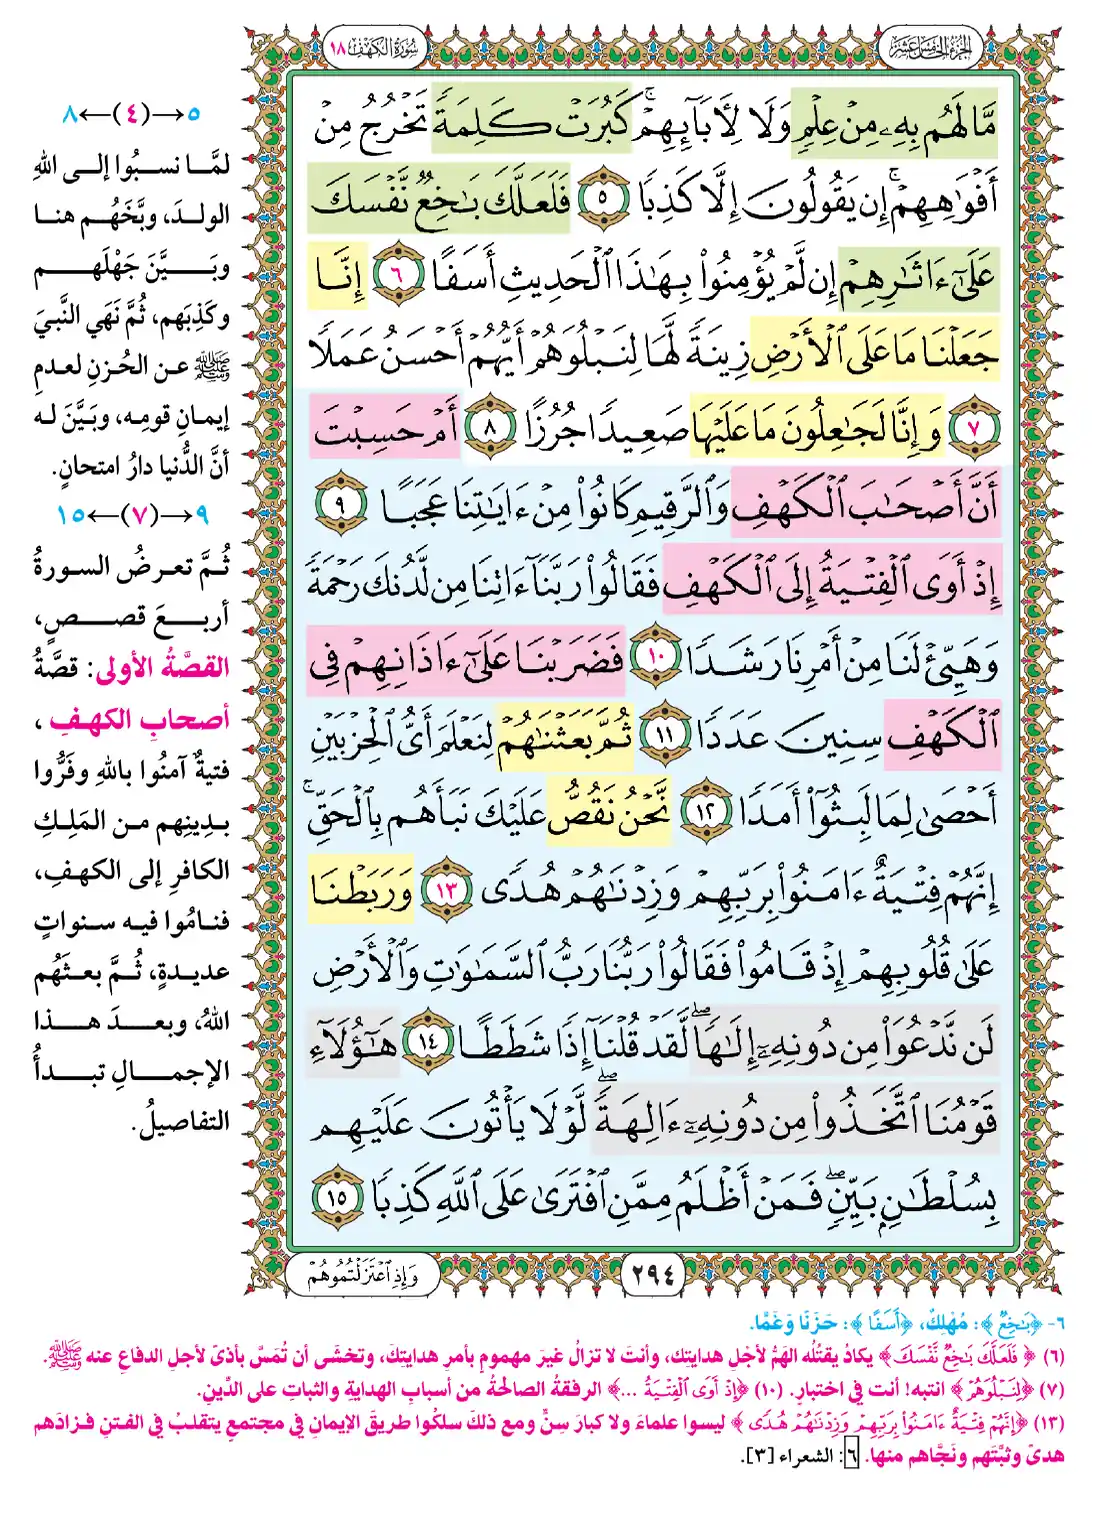 الجزء الخامس عشر
سورة الكهف ١٨
مَّا لَهُم بِهِۦ مِنْ عِلْمٍ وَلَا لِأٓبَآئِهِمْ ۚ كَبُرَتْ كَلِمَةً تَخْرُجُ مِنْ
أَفْوَٰهِهِمْ ۚ إِن يَقُولُونَ إِلَّا كَذِبًا ٥ فَلَعَلَّكَ بَٰخِعٌ نَّفْسَكَ
عَلَىٰٓ ءَاثَٰرِهِمْ إِن لَّمْ يُؤْمِنُوا۟ بِهَٰذَا ٱلْحَدِيثِ أَسَفًا ٦ إِنَّا
جَعَلْنَا مَا عَلَى ٱلْأَرْضِ زِينَةً لَّهَا لِنَبْلُوَهُمْ أَيُّهُمْ أَحْسَنُ عَمَلًا
٧ وَإِنَّا لَجَٰعِلُونَ مَا عَلَيْهَا صَعِيدًا جُرُزًا ٨ أَمْ حَسِبْتَ
أَنَّ أَصْحَٰبَ ٱلْكَهْفِ وَٱلرَّقِيمِ كَانُوا۟ مِنْ ءَايَٰتِنَا عَجَبًا ٩
إِذْ أَوَى ٱلْفِتْيَةُ إِلَى ٱلْكَهْفِ فَقَالُوا۟ رَبَّنَآ ءَاتِنَا مِن لَّدُنكَ رَحْمَةً
وَهَيِّئْ لَنَا مِنْ أَمْرِنَا رَشَدًا ١٠ فَضَرَبْنَا عَلَىٰٓ ءَاذَانِهِمْ فِى
ٱلْكَهْفِ سِنِينَ عَدَدًا ١١ ثُمَّ بَعَثْنَٰهُمْ لِنَعْلَمَ أَىُّ ٱلْحِزْبَيْنِ
أَحْصَىٰ لِمَا لَبِثُوٓا۟ أَمَدًا ١٢ نَّحْنُ نَقُصُّ عَلَيْكَ نَبَأَهُم بِٱلْحَقِّ ۚ
إِنَّهُمْ فِتْيَةٌ ءَامَنُوا۟ بِرَبِّهِمْ وَزِدْنَٰهُمْ هُدًى ١٣ وَرَبَطْنَا
عَلَىٰ قُلُوبِهِمْ إِذْ قَامُوا۟ فَقَالُوا۟ رَبُّنَا رَبُّ ٱلسَّمَٰوَٰتِ وَٱلْأَرْضِ
لَن نَّدْعُوَا۟ مِن دُونِهِۦٓ إِلَٰهًا ۖ لَّقَدْ قُلْنَآ إِذًا شَطَطًا ١٤ هَٰٓؤُلَآءِ
قَوْمُنَا ٱتَّخَذُوا۟ مِن دُونِهِۦٓ ءَالِهَةً ۖ لَّوْلَا يَأْتُونَ عَلَيْهِم
بِسُلْطَٰنٍۭ بَيِّنٍ ۖ فَمَنْ أَظْلَمُ مِمَّنِ ٱفْتَرَىٰ عَلَى ٱللَّهِ كَذِبًا ١٥
٢٩٤
وَإِذِ ٱعْتَزَلْتُمُوهُمْ
٥→(٤)←٨
لمَّا نسبُوا إلى اللهِ
الولدَ، وبَّخَهُم هنا
وبَيَّنَ جَهْلَهم
وكَذِبَهم، ثُمَّ نَهَي النَّبيَ
ﷺ عن الحُزنِ لعدمِ
إيمانِ قومِه، وبَيَّنَ له
أنَّ الدُّنيا دارُ امتحانٍ.
٩→(٧)←١٥
ثُمَّ تعرضُ السورةُ
أربعَ قصصٍ،
القصَّةُ الأولى: قصَّةُ
أصحابِ الكهفِ ،
فتيةٌ آمنُوا باللهِ وفَرُّوا
بدِينِهم من المَلِكِ
الكافرِ إلى الكهفِ،
فنامُوا فيه سنواتٍ
عديدةٍ، ثُمَّ بعثَهُم
اللهُ، وبعدَ هذا
الإجمالِ تبدأُ
التفاصيلُ.
٦- ﴿بَٰخِعٌ﴾: مُهْلِكٌ، ﴿أَسَفًا﴾: حَزَنًا وَغَمًّا.
(٦) ﴿فَلَعَلَّكَ بَٰخِعٌ نَّفْسَكَ﴾ يكادُ يقتُلُه الهَمُّ لأجلِ هدايتِك، وأنتَ لا تزالُ غيرَ مهمومٍ بأمرِ هدايتِكَ، وتخشَى أن تُمَسَّ بأذىً لأجلِ الدفاعِ عنه ﷺ.
(٧) ﴿لِنَبْلُوَهُمْ﴾ انتبه! أنت في اختبارٍ. (١٠) ﴿إِذْ أَوَى ٱلْفِتْيَةُ ...﴾ الرفقةُ الصالحةُ من أسبابِ الهدايةِ والثباتِ على الدِّينِ.
(١٣) ﴿إِنَّهُمْ فِتْيَةٌ ءَامَنُوا۟ بِرَبِّهِمْ وَزِدْنَٰهُمْ هُدًى﴾ ليسوا علماءَ ولا كبارَ سِنٍّ ومع ذلكَ سلكُوا طريقَ الإيمانِ في مجتمعٍ يتقلبُ في الفتنِ فزادَهم
هدىً وثبَّتَهم ونَجَّاهم منها. ٦: الشعراء [٣].